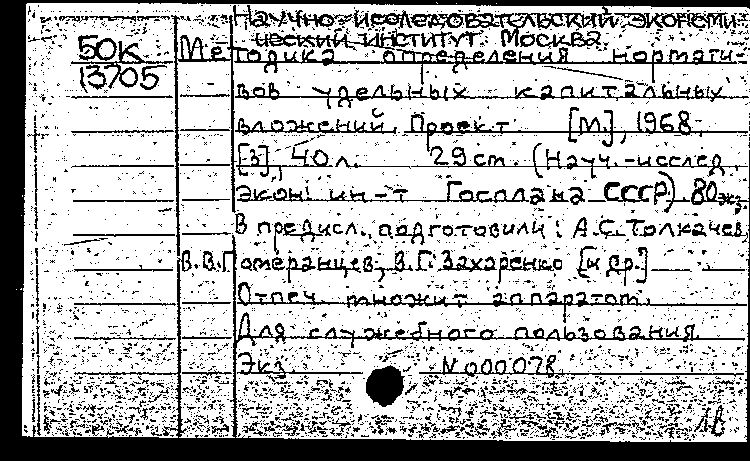 Научно-исследовательский экономи-
ческий институт. Москва.
50К
13705
Методика определения нормати-
вов удельных капитальных
вложений. Проект. [М.], 1968.
[3], 40 л. 29 см. (Науч.-исслед.
экон. ин-т Госплана СССР). 80 экз.
В предисл. подготовили: А.С. Толкачев,
В.В. Померанцев, В.Г. Захаренко [и др.]
Отпеч. множит. аппаратом.
Для служебного пользования.
Экз. N 000078.